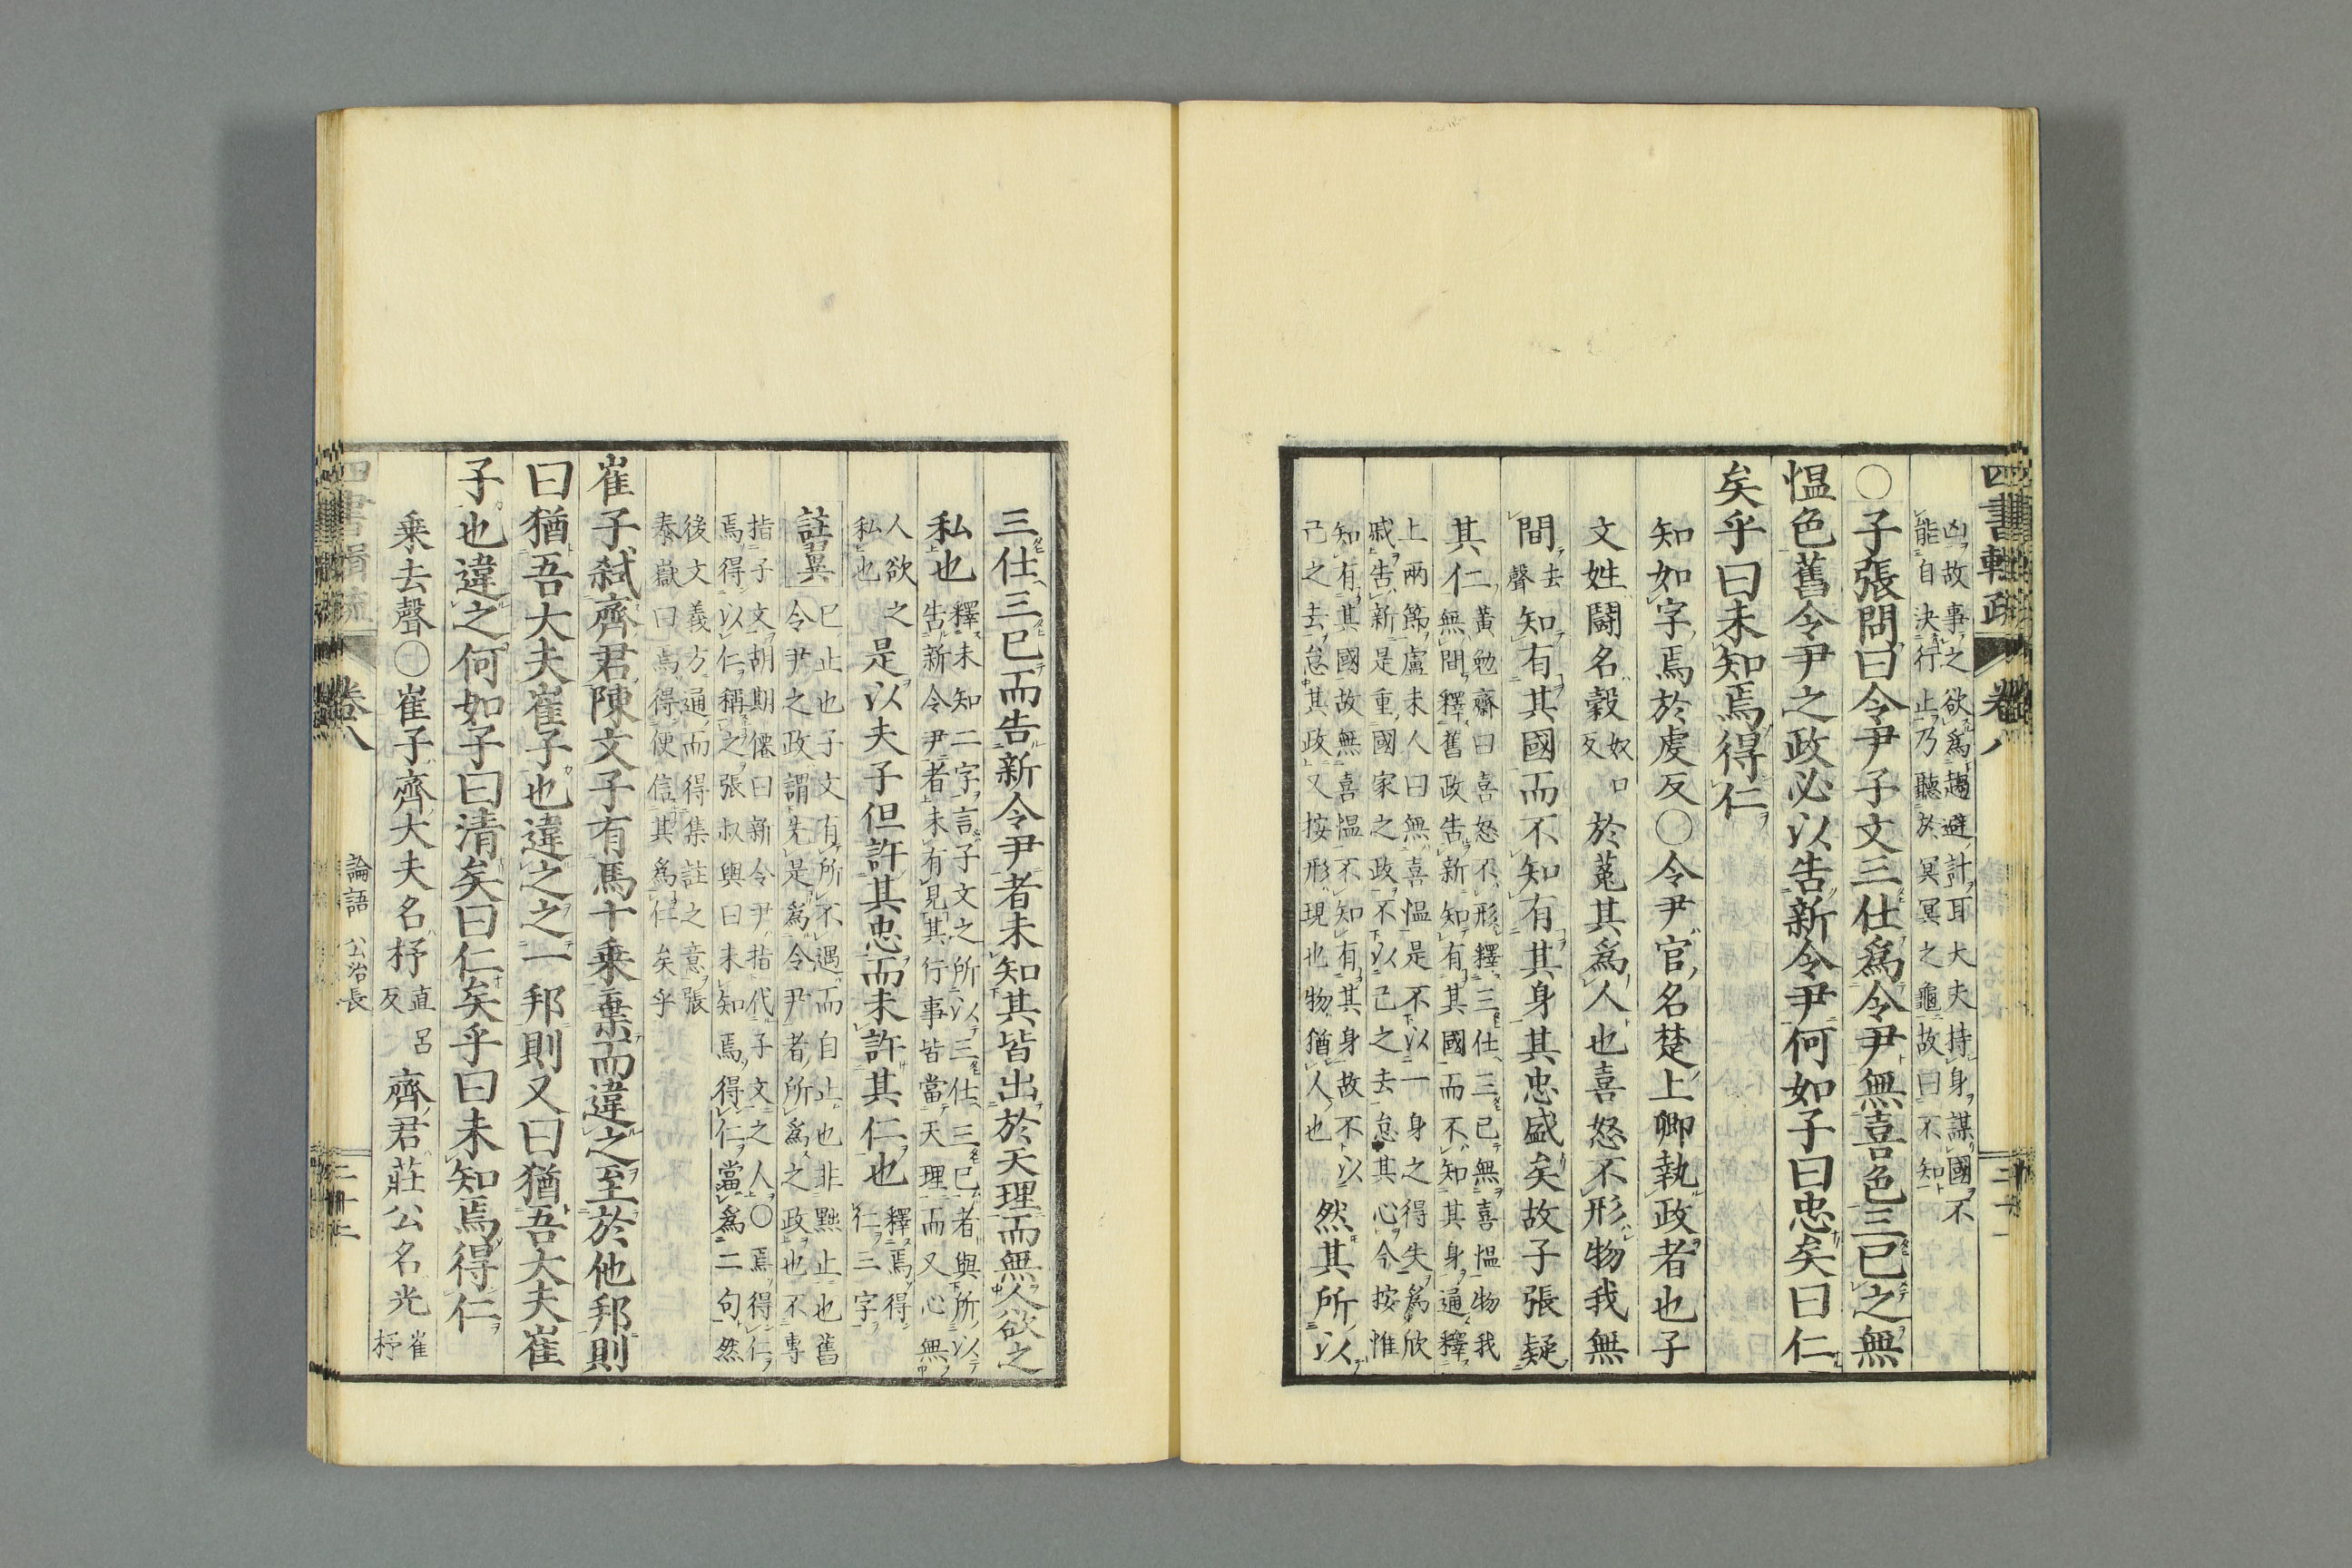 凶故事之欲爲趨避計耳大夫持身謀國不
能自決行止乃聽於冥冥之龜故曰不知
○子張問曰令尹子文三仕爲令尹無喜色三已之無
慍色舊令尹之政必以告新令尹何如子曰忠矣曰仁
矣乎曰未知焉得仁
知如字焉於虔反○令尹官名楚上卿執政者也子
文姓鬪名穀奴口反於菟其爲人也喜怒不形物我無
間去聲知有其國而不知有其身其忠盛矣故子張疑
其仁黃勉齋曰喜怒不形釋三仕三已無喜慍物我
無間釋舊政告新知有其國而不知其身通釋
上兩節盧未人曰無喜慍是不以一身之得失爲欣
戚告新是重國家之政不以己之去怠其心今按惟
知有其國故無喜慍不知有其身故不以
己之去怠其政又按形現也物猶人也
然其所以
三仕三已而告新令尹者未知其皆出於天理而無人欲之
私也釋未知二字言子文之所以三仕三已者與所以
告新令尹者未有見其行事皆當天理而又心無
人欲之
私也
是以夫子但許其忠而未許其仁也釋焉得
仁三字
註異已止也子文有所不遇而自止也非黜止也舊
令尹之政謂先是爲令尹者所爲之政也不專
指子文胡期僊曰新令尹指代子文之人○焉得仁
焉得以仁稱之張叔輿曰未知焉得仁當爲二句然
後文義方通而得集註之意張
泰嶽曰焉得便信其爲仁矣乎
崔子弒齊君陳文子有馬十乘棄而違之至於他邦則
曰猶吾大夫崔子也違之之一邦則又曰猶吾大夫崔
子也違之何如子曰清矣曰仁矣乎曰未知焉得仁
乘去聲○崔子齊大夫名杼直呂反齊君莊公名光崔
杼
卷八
論語 公冶長
二十二